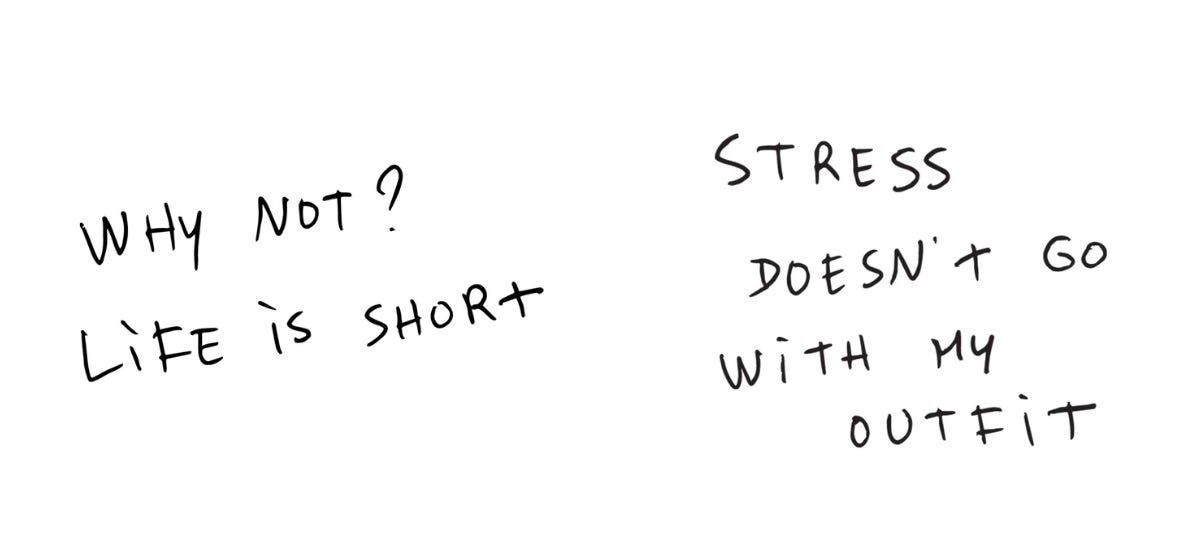 WHY NOT?
LiFE iS SHORT
STRESS
DOESN'T GO
WiTH MY
OUTFiT